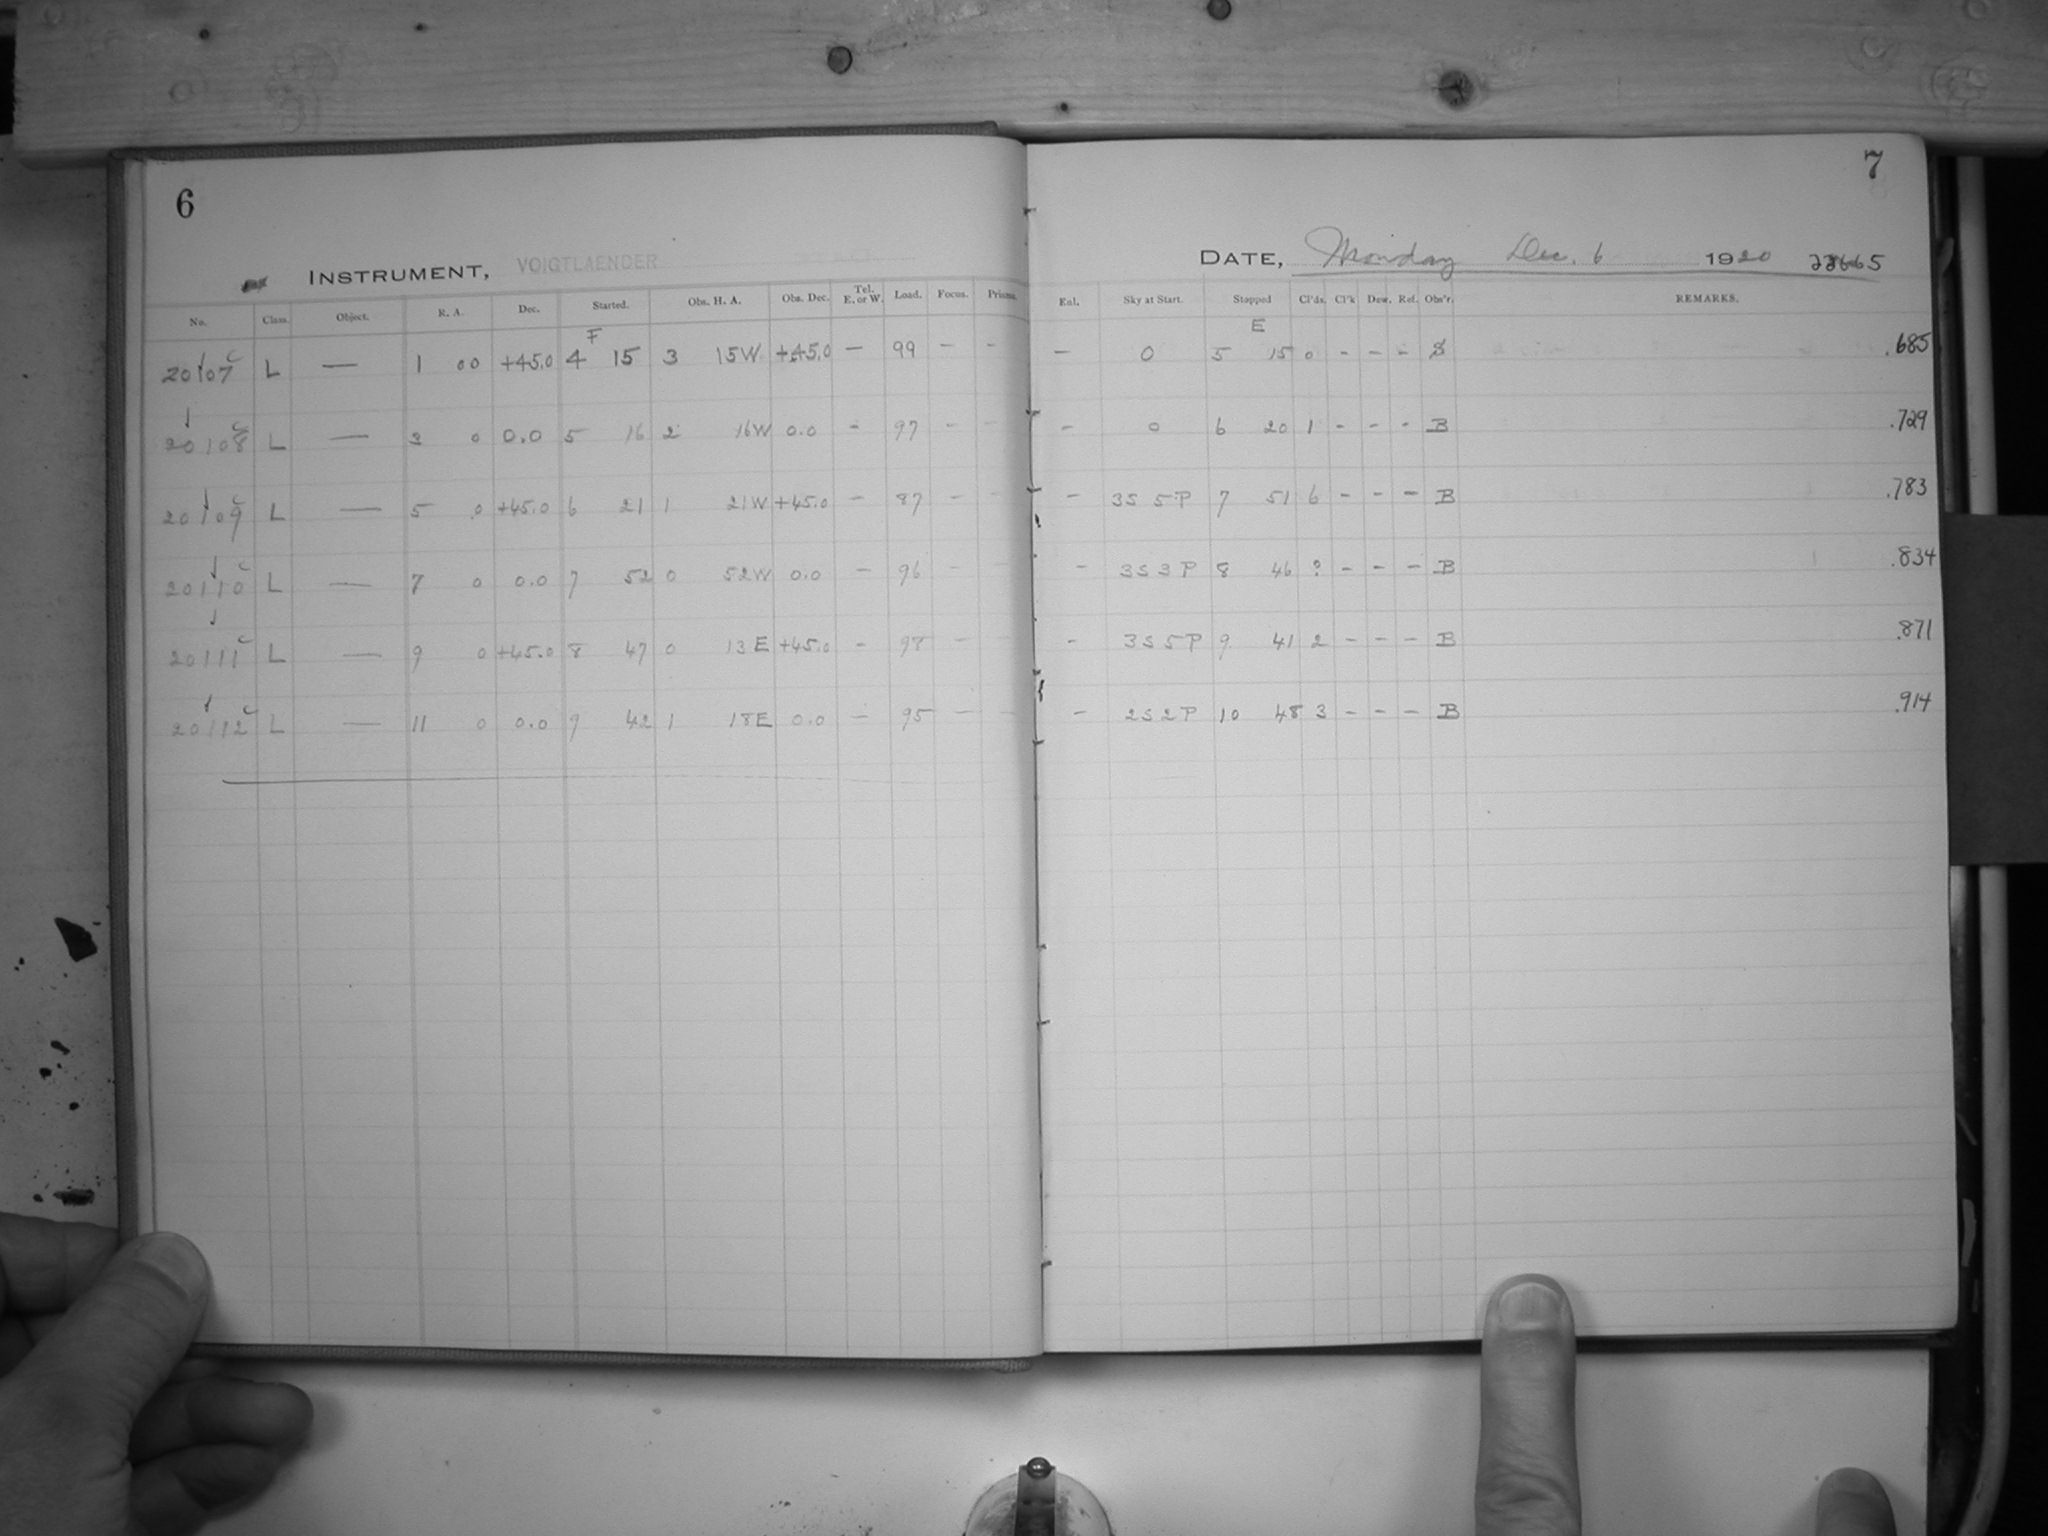 6
INSTRUMENT, VOIGTLAENDER
No. Class. Object. R. A. Dec. Started. Obs. H. A. Obs. Dec. Tel. E. or W. Load. Focus. Prisms.
F
20107 c L — 1 00 +45.0 4 15 3 15W +45.0 — 99 - -
20108 c L — 3 0 0.0 5 16 2 16W 0.0 - 97 - -
20109 c L — 5 0 +45.0 6 21 1 21W +45.0 - 87 - -
20110 c L — 7 0 0.0 7 52 0 52W 0.0 - 96 - -
20111 c L — 9 0 +45.0 8 47 0 13E +45.0 - 98 - -
20112 c L — 11 0 0.0 9 42 1 18E 0.0 - 95 - -
7
DATE, Monday Dec. 6 1920
Enl. Sky at Start. Stopped Cl'ds. Cl'k Dew. Ref. Obs'r. REMARKS.
E
- 0 5 15 0 - - - S .685
- 0 6 20 1 - - - B .729
- 3S 5P 7 51 6 - - - B .783
- 3S 3P 8 46 ? - - - B .834
- 3S 5P 9 41 2 - - - B .871
- 2S 2P 10 48 3 - - - B .914